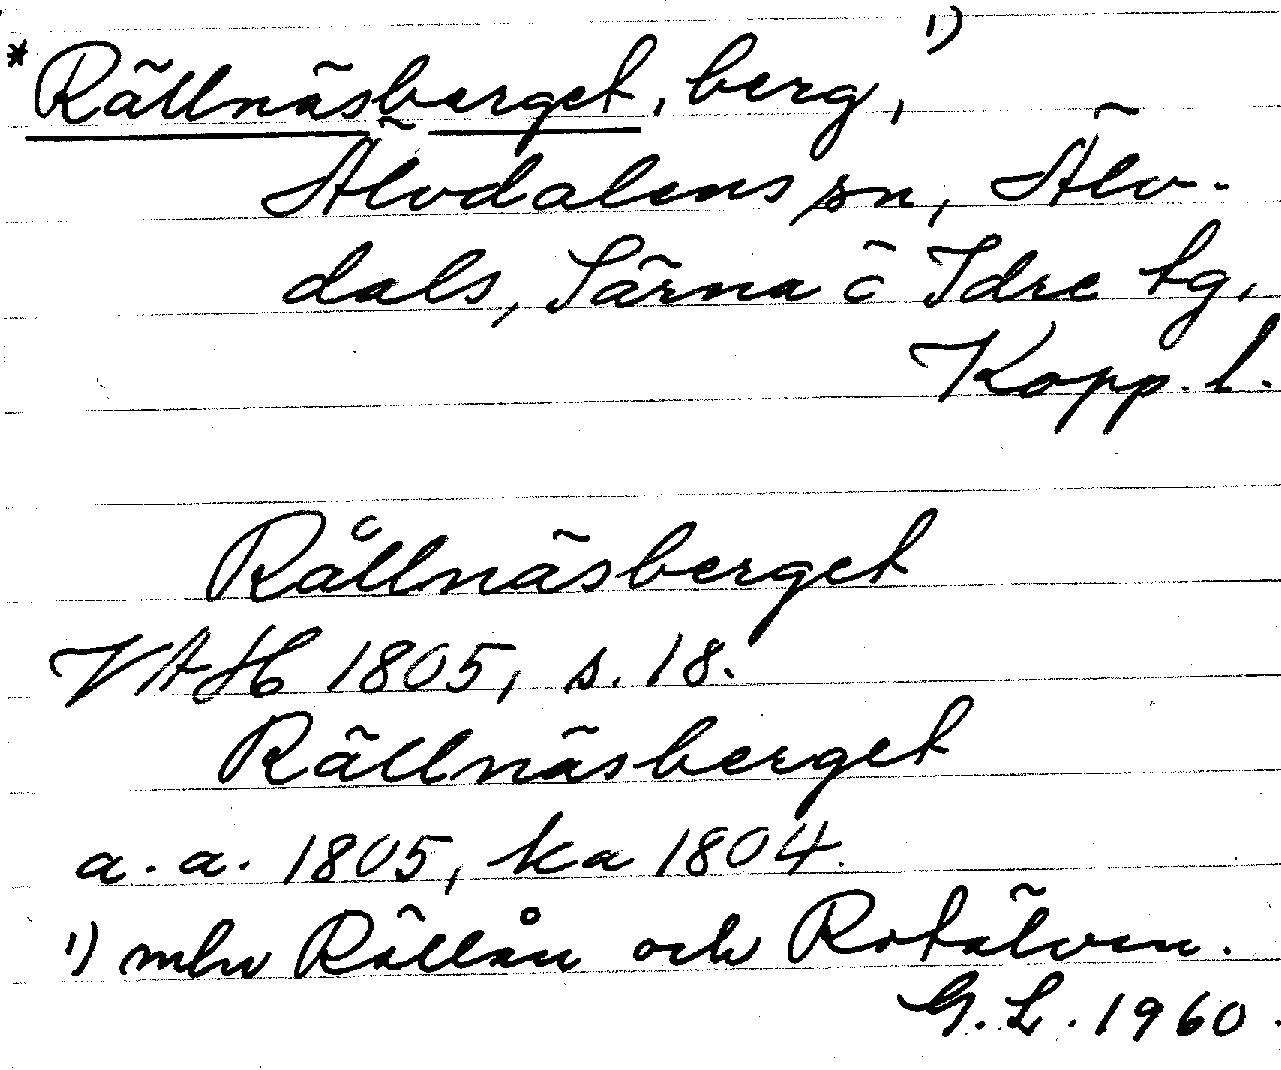 *Rällnäsberget, berg, 1)
Älvdalens sn, Älv-
dals, Särna o Idre tg,
Kopp. l.
Rållnäsberget
VAH 1805, s. 18.
Rällnäsberget
a. a. 1805, ka 1804.
1) mln Rällån och Rotälven.
G. L. 1960.